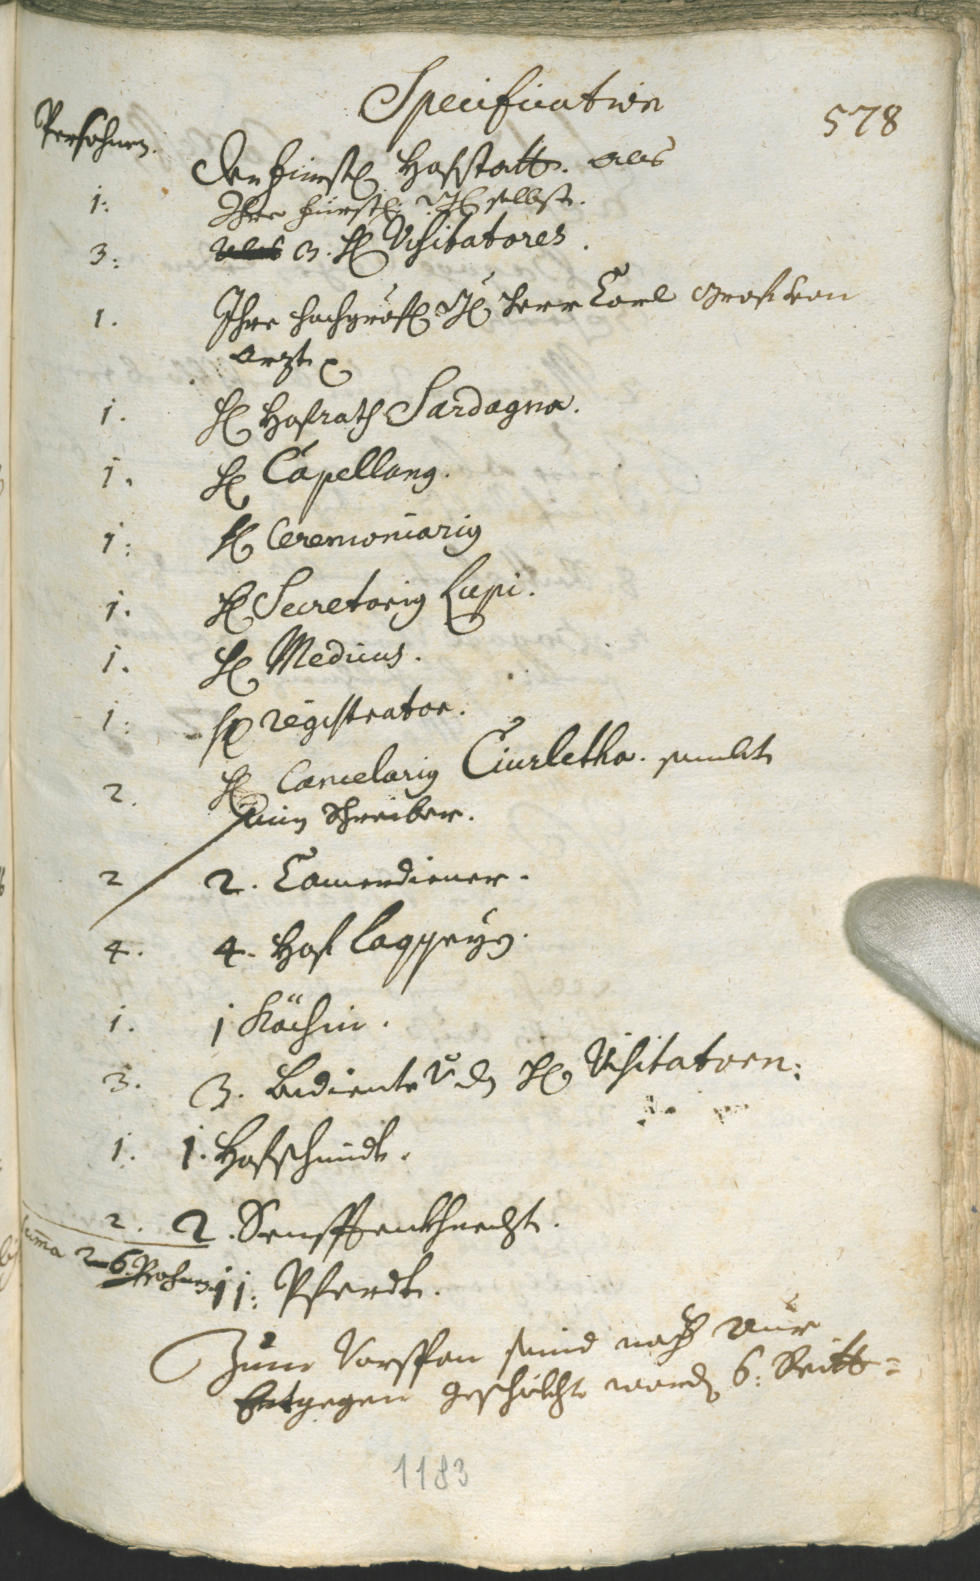 Specification
578
Persohnen.
Der fürstl. Hofstatt. als
1. Ihre fürstl. selbst.
3: 3. H. Visitatores.
1. Ihre hochgräfl. Herr Carl Graf von
Arzt
1. H. Hofrath Sardagna.
1. H. Capellang.
1: H. Ceremoniarig
1. H. Secretarig Lupi.
1. H. Medicus.
1: H. registrator.
2. H. Cancelarig Ciurletha. sambt
sein Schreiber.
2 2. Camerdiener.
4. 4. Hof laqqeyen.
1. 1 Köchin.
3. 3. bediente V. d. H. Visitatorn:
1. 1. Hofschmidt.
2. 2. Sänfftenkhnecht.
Suma 26. Persohnen
11. Pferdt.
Zum Vorspan seind nach Aur
Entgegen geschickht word. 6. Reitt=
1183